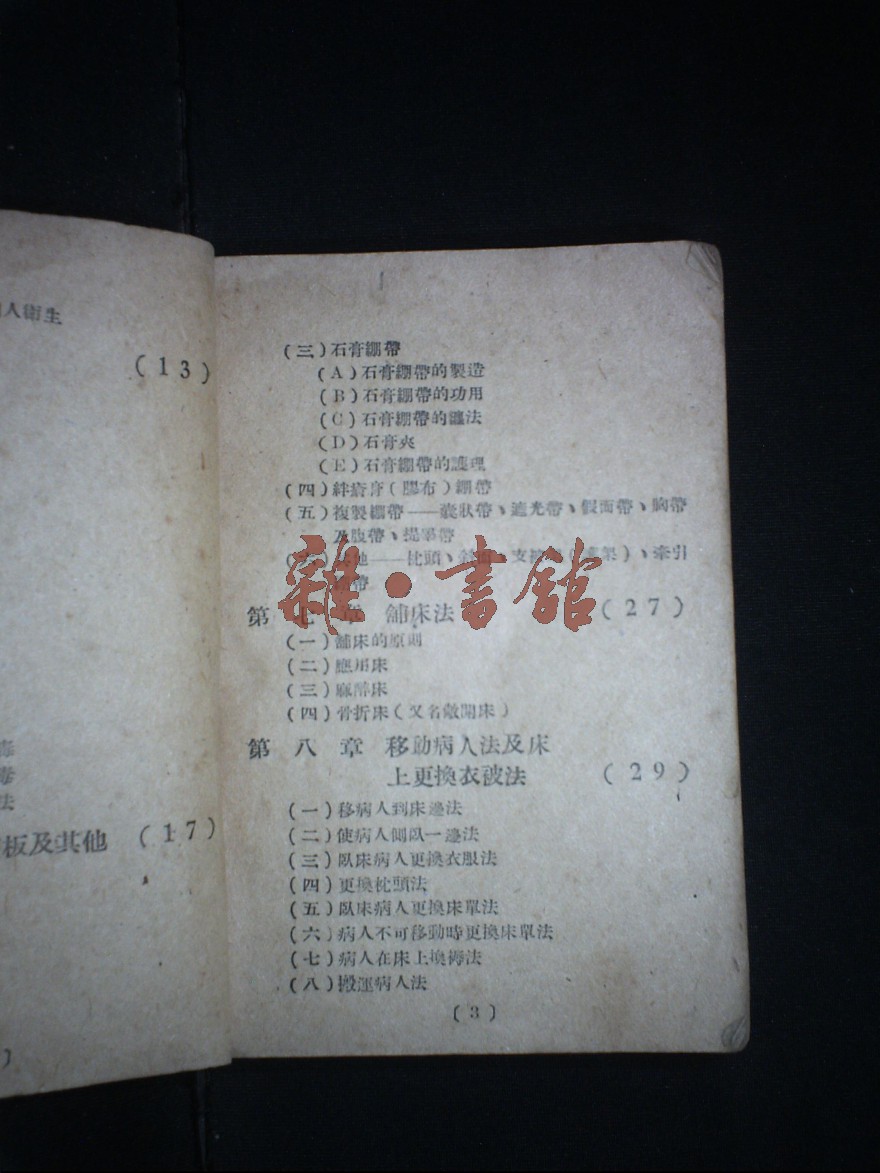 人衛生
(13)
板及其他 (17)
(三)石膏繃帶
(A)石膏繃帶的製造
(B)石膏繃帶的功用
(C)石膏繃帶的纏法
(D)石膏夾
(E)石膏繃帶的護理
(四)絆瘡膏(膠布)繃帶
(五)複製繃帶——囊狀帶、遮光帶、假面帶、胸帶
及腹帶、提睪帶
其他——枕頭、支 、牽引
帶
雜·書館
第七章 舖床法 (27)
(一)舖床的原則
(二)應用床
(三)麻醉床
(四)骨折床(又名敞開床)
第八章 移動病人法及床
上更換衣被法 (29)
(一)移病人到床邊法
(二)使病人側臥一邊法
(三)臥床病人更換衣服法
(四)更換枕頭法
(五)臥床病人更換床單法
(六)病人不可移動時更換床單法
(七)病人在床上換褥法
(八)搬運病人法
(3)